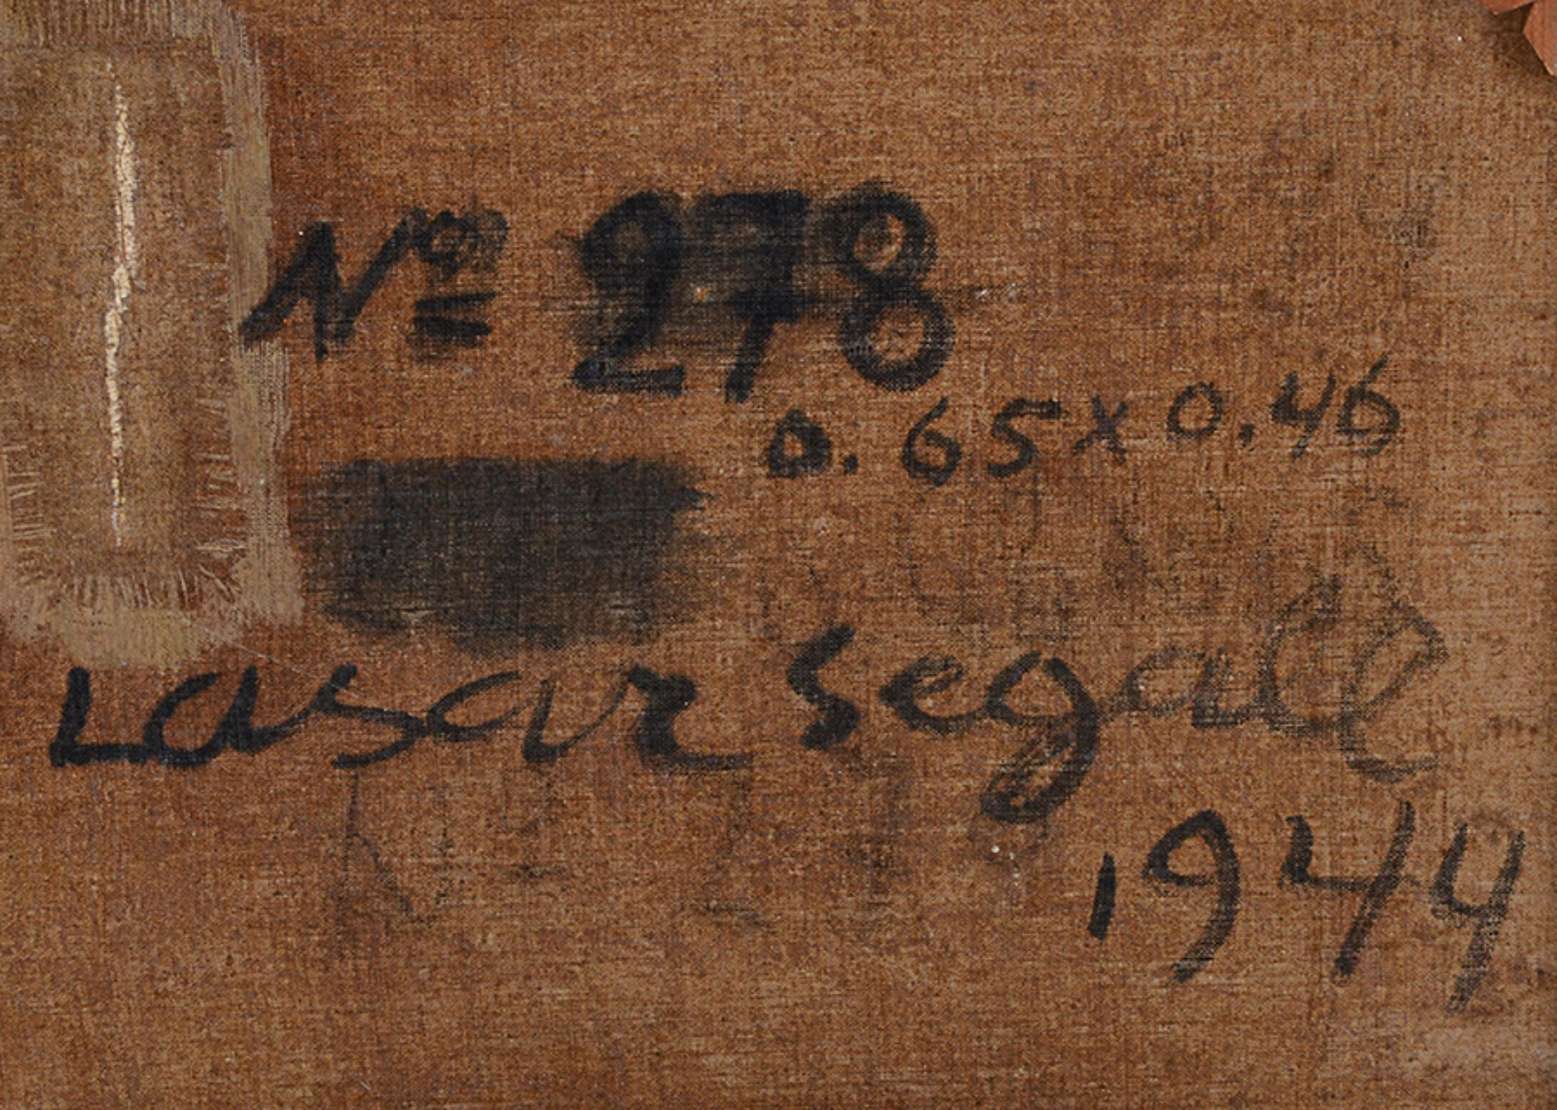 Nº 278
0.65x0.46
Lasar Segall
1944